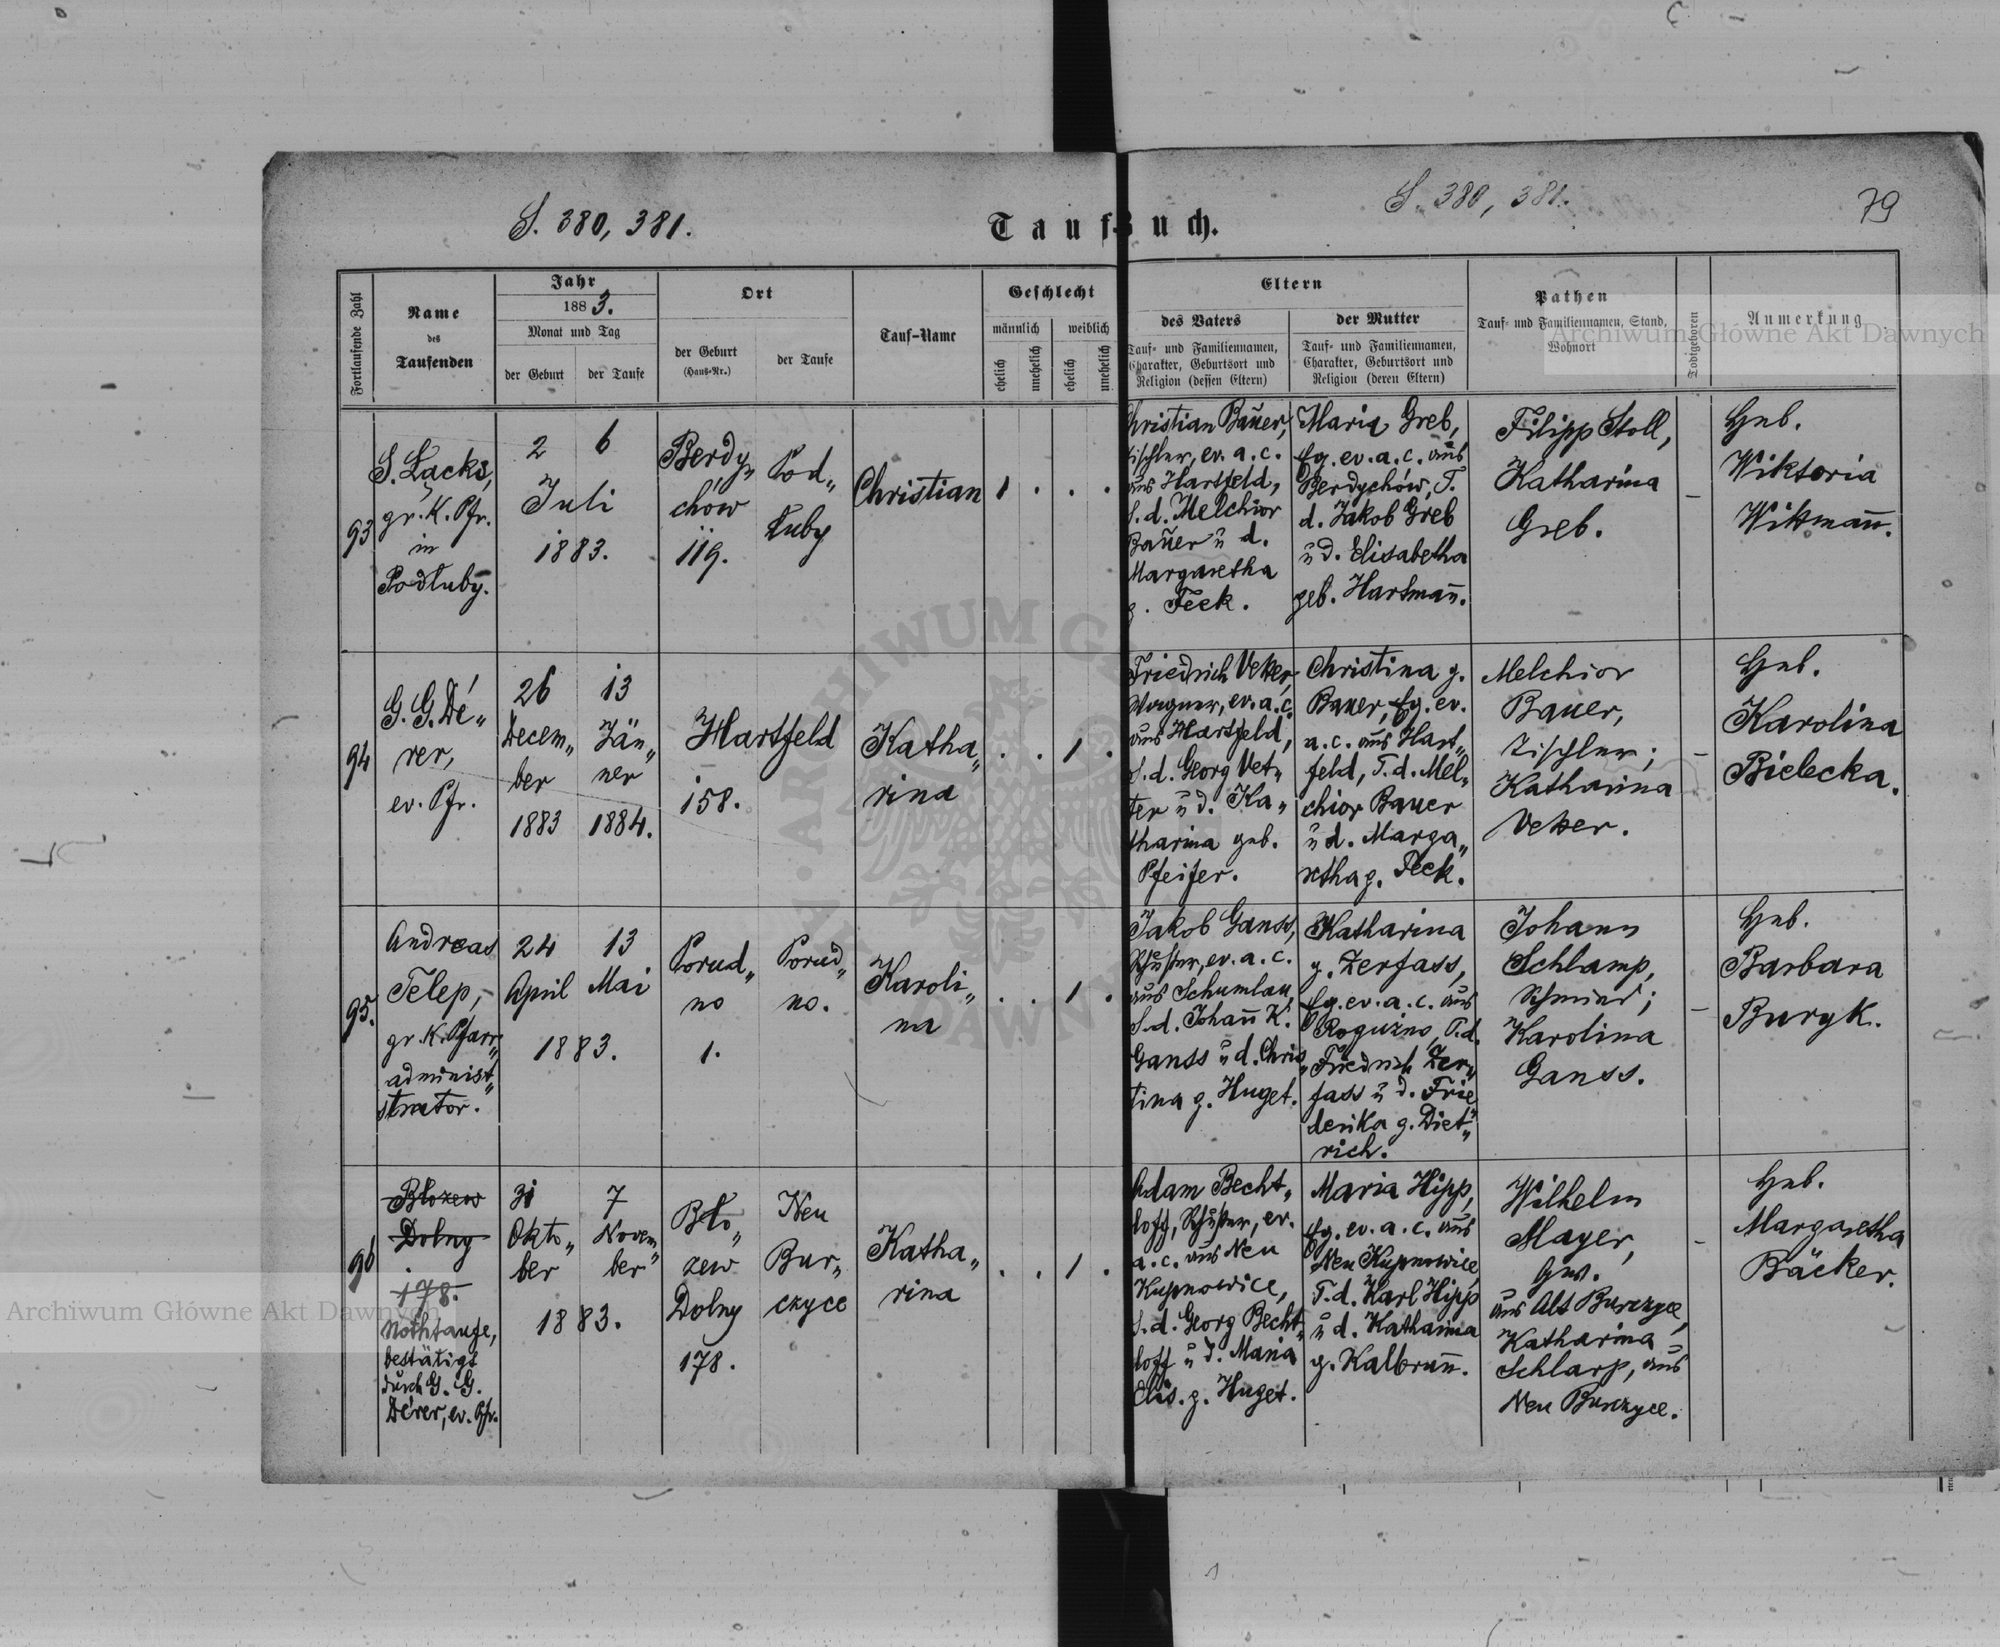 S. 380, 381.
Taufbuch.
S. 380, 381.
79
Fortlaufende Zahl
Name
des
Taufenden
Jahr
1883.
Monat und Tag
der Geburt
der Taufe
Ort
der Geburt
(Haus-Nr.)
der Taufe
Tauf-Name
Geschlecht
männlich
weiblich
ehelich
unehelich
ehelich
unehelich
Eltern
des Vaters
Tauf- und Familiennamen,
Charakter, Geburtsort und
Religion (dessen Eltern)
der Mutter
Tauf- und Familiennamen,
Charakter, Geburtsort und
Religion (deren Eltern)
Pathen
Tauf- und Familiennamen, Stand,
Wohnort
Todtgeboren
Anmerkung
93
S. Lacks,
gr. K. Pfr.
in
Podłuby.
2
6
Juli
1883.
Berdy„
chów
119.
Pod„
łuby
Christian
1 . . .
Christian Bauer,
Tischler, ev. a. c.
aus Hartfeld,
S. d. Melchior
Bauer u d.
Margaretha
g. Feck.
Maria Greb,
Eg. ev. a. c. aus
Berdychów, T.
d. Jakob Greb
u d. Elisabetha
geb. Hartmann.
Filipp Stoll,
Katharina
Greb.
–
Heb.
Wiktoria
Wittmann.
94
G. G. Dé„
rer,
ev. Pfr.
26
Decem„
ber
1883
13
Jän„
ner
1884.
Hartfeld
158.
Katha„
rina
. . 1 .
Friedrich Vetter,
Wagner, ev. a. c.
aus Hartfeld,
S. d. Georg Vet„
ter u d. Ka„
tharina geb.
Pfeifer.
Christina g.
Bauer, Eg. ev.
a. c. aus Hart„
feld, T. d. Mel„
chior Bauer
u d. Marga„
retha g. Feck.
Melchior
Bauer,
Tischler;
Katharina
Vetter.
–
Heb.
Karolina
Bielecka.
95.
Andreas
Telep,
gr. K. Pfarr„
administ„
strator.
24
April
13
Mai
1883.
Porud„
no
1.
Porud„
no.
Karoli„
na
. . 1 .
Jakob Ganss,
Schuster, ev. a. c.
aus Schumlau,
S. d. Johann K.
Ganss u d. Chris„
tina g. Huget.
Katharina
g. Zerfass,
Eg. ev. a. c. aus
Roguźno, T. d.
Friedrich Zer„
fass u d. Frie„
derika g. Diet„
rich.
Johann
Schlamp,
Schmied;
Karolina
Ganss.
–
Heb.
Barbara
Buryk.
96
Błozew
Dolny
178.
Nothtaufe,
bestätigt
durch G. G.
Dérer, ev. Pfr.
31
Okto„
ber
7
Novem„
ber
1883.
Bło„
zew
Dolny
178.
Neu
Bur„
czyce
Katha„
rina
. . 1 .
Adam Becht„
loff, Schuster, ev.
a. c. aus Neu
Kupnowice,
S. d. Georg Becht„
loff u d. Maria
Elis. g. Huget.
Maria Hipp,
Eg. ev. a. c. aus
Neu Kupnowice,
T. d. Karl Hipp
u d. Katharina
g. Kalbrunn.
Wilhelm
Mayer,
aus Alt Burczyce,
Katharina
Schlarp, aus
Neu Burczyce.
–
Heb.
Margaretha
Bäcker.
Archiwum Główne Akt Dawnych
Archiwum Główne Akt Dawnych